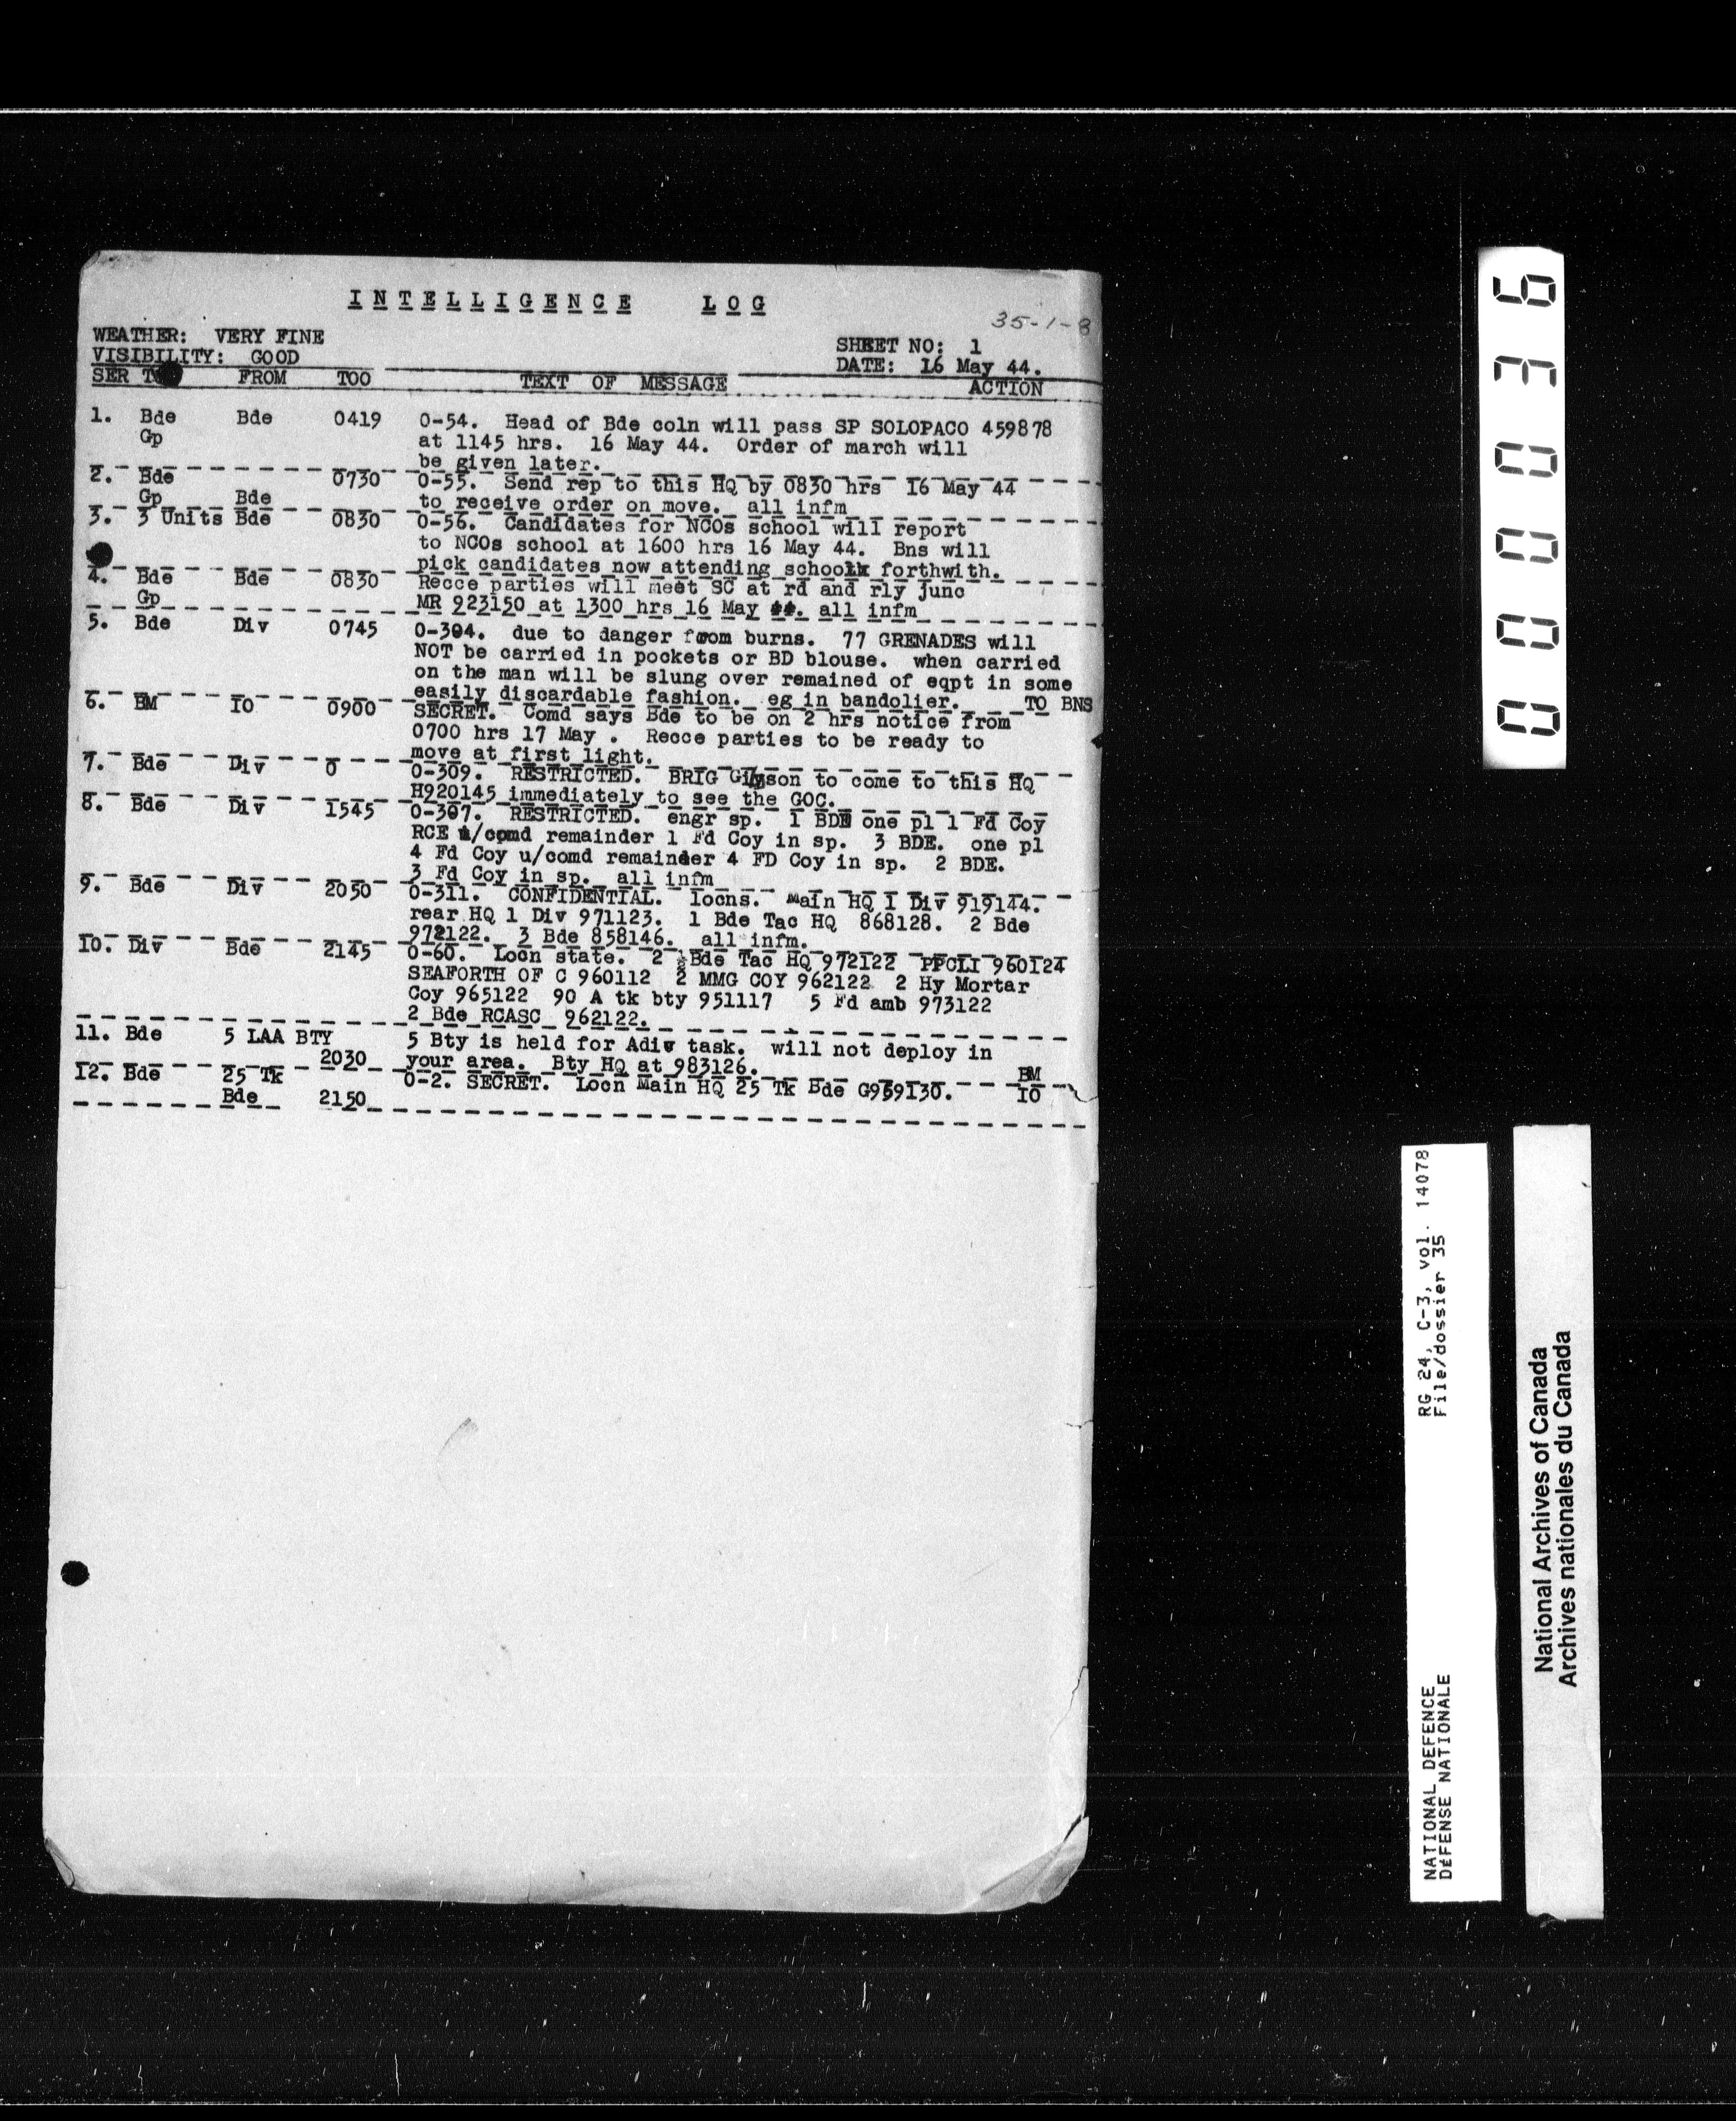 INTELLIGENCE LOG
35-1-8
WEATHER: VERY FINE
VISIBILITY: GOOD
SHEET NO: 1
DATE: 16 May 44.
SER TO FROM TOO TEXT OF MESSAGE ACTION
1. Bde Bde 0419 0-54. Head of Bde coln will pass SP SOLOPACO 459878
Gp at 1145 hrs. 16 May 44. Order of march will
be given later.
2. Bde 0730 0-55. Send rep to this HQ by 0830 hrs 16 May 44
Gp Bde to receive order on move. all infm
3. 3 Units Bde 0830 0-56. Candidates for NCOs school will report
to NCOs school at 1600 hrs 16 May 44. Bns will
pick candidates now attending school forthwith.
4. Bde Bde 0830 Recce parties will meet SC at rd and rly junc
Gp MR 923150 at 1300 hrs 16 May 44. all infm
5. Bde Div 0745 0-304. due to danger from burns. 77 GRENADES will
NOT be carried in pockets or BD blouse. when carried
on the man will be slung over remained of eqpt in some
easily discardable fashion. eg in bandolier. TO BNS
6. BM IO 0900 SECRET. Comd says Bde to be on 2 hrs notice from
0700 hrs 17 May . Recce parties to be ready to
move at first light.
7. Bde Div 0 0-309. RESTRICTED. BRIG Gibson to come to this HQ
H920145 immediately to see the GOC.
8. Bde Div 1545 0-307. RESTRICTED. engr sp. 1 BDE one pl 1 Fd Coy
RCE u/comd remainder 1 Fd Coy in sp. 3 BDE. one pl
4 Fd Coy u/comd remainder 4 FD Coy in sp. 2 BDE.
3 Fd Coy in sp. all infm
9. Bde Div 2050 0-311. CONFIDENTIAL. locns. Main HQ 1 Div 919144.
rear HQ 1 Div 971123. 1 Bde Tac HQ 868128. 2 Bde
972122. 3 Bde 858146. all infm.
10. Div Bde 2145 0-60. Locn state. 2 Bde Tac HQ 972122 PPCLI 960124
SEAFORTH OF C 960112 2 MMG COY 962122 2 Hy Mortar
Coy 965122 90 A tk bty 951117 5 Fd amb 973122
2 Bde RCASC 962122.
11. Bde 5 LAA BTY 5 Bty is held for Adiv task. will not deploy in
2030 your area. Bty HQ at 983126. BM
12. Bde 25 Tk 0-2. SECRET. Locn Main HQ 25 Tk Bde G959130. IO
Bde 2150
000036
RG 24, C-3, vol. 14078
File/dossier 35
NATIONAL DEFENCE
DÉFENSE NATIONALE
National Archives of Canada
Archives nationales du Canada